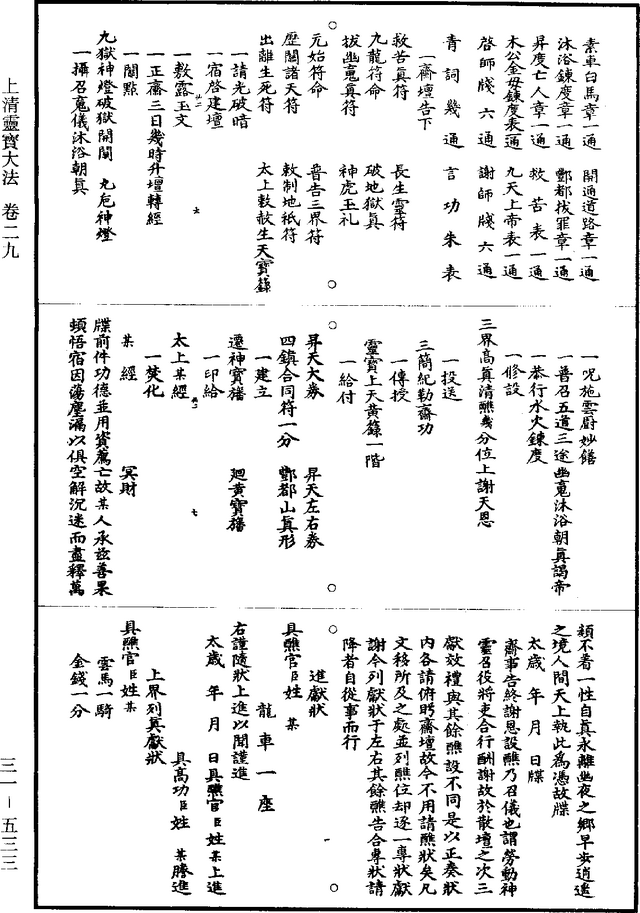 上清靈寶大法　卷二九
三一－五三三
素車白馬章一通　開通道路章一通
沐浴鍊度章一通　酆都拔罪章一通
昇度亡人章一通　救苦表一通
木公金母鍊度表通　九天上帝表一通
啓師牋六通　謝師牋六通
青詞幾通　言功朱表
一齋壇告下
救苦真符　長生靈符
九龍符命　破地獄真
拔幽䰟真符　神虎玉札
元始符命　普告三界符
歷關諸天符　敕制地祇符
出離生死符　太上敕赦生天寶籙
一請光破暗
一宿啓建壇
一敷露玉文
一正齋三日幾時升壇轉經
一關點
九獄神燈破獄開關　九巵神燈
一攝召䰟儀沐浴朝真
一呪施雲廚妙饍
一普召五道三途幽䰟沐浴朝真謁帝
一恭行水火鍊度
一修設
三界高真清醮幾分位上謝天恩
一投送
三簡紀勒齋功
一傳授
靈寶上天黃籙一階
一給付
昇天大券　昇天左右券
四鎮合同符一分　酆都山真形
一建立
遷神寶旛　廻黃寶旛
一印給
太上某經
一焚化
某經　冥財
牒前件功德並用資薦亡故某人承兹善果
頓悟宿因蕩塵漏以俱空解沉迷而盡釋萬
類不着一性自真永離幽夜之鄉早步逍遙
之境人間天上執此爲憑故牒
太歲　年　月　日牒
齋事告終謝恩設醮乃召儀也謂勞動神
靈召役將吏合行酬謝故於散壇之次三
獻效禮與其餘醮設不同是以正奏狀
內各請俯盻齋壇故令不用請醮狀矣凡
文移所及之處並列醮位却逐一專狀獻
謝令列獻狀于左右其餘醮告合專狀請
降者自從事而行
進獻狀
具醮官臣姓某
龍車一座
右謹隨狀上進以聞謹進
太歲　年　月　日具醮官臣姓某上進
具高功臣姓某騰進
上界列真獻狀
具醮官臣姓某
雲馬一騎
金錢一分